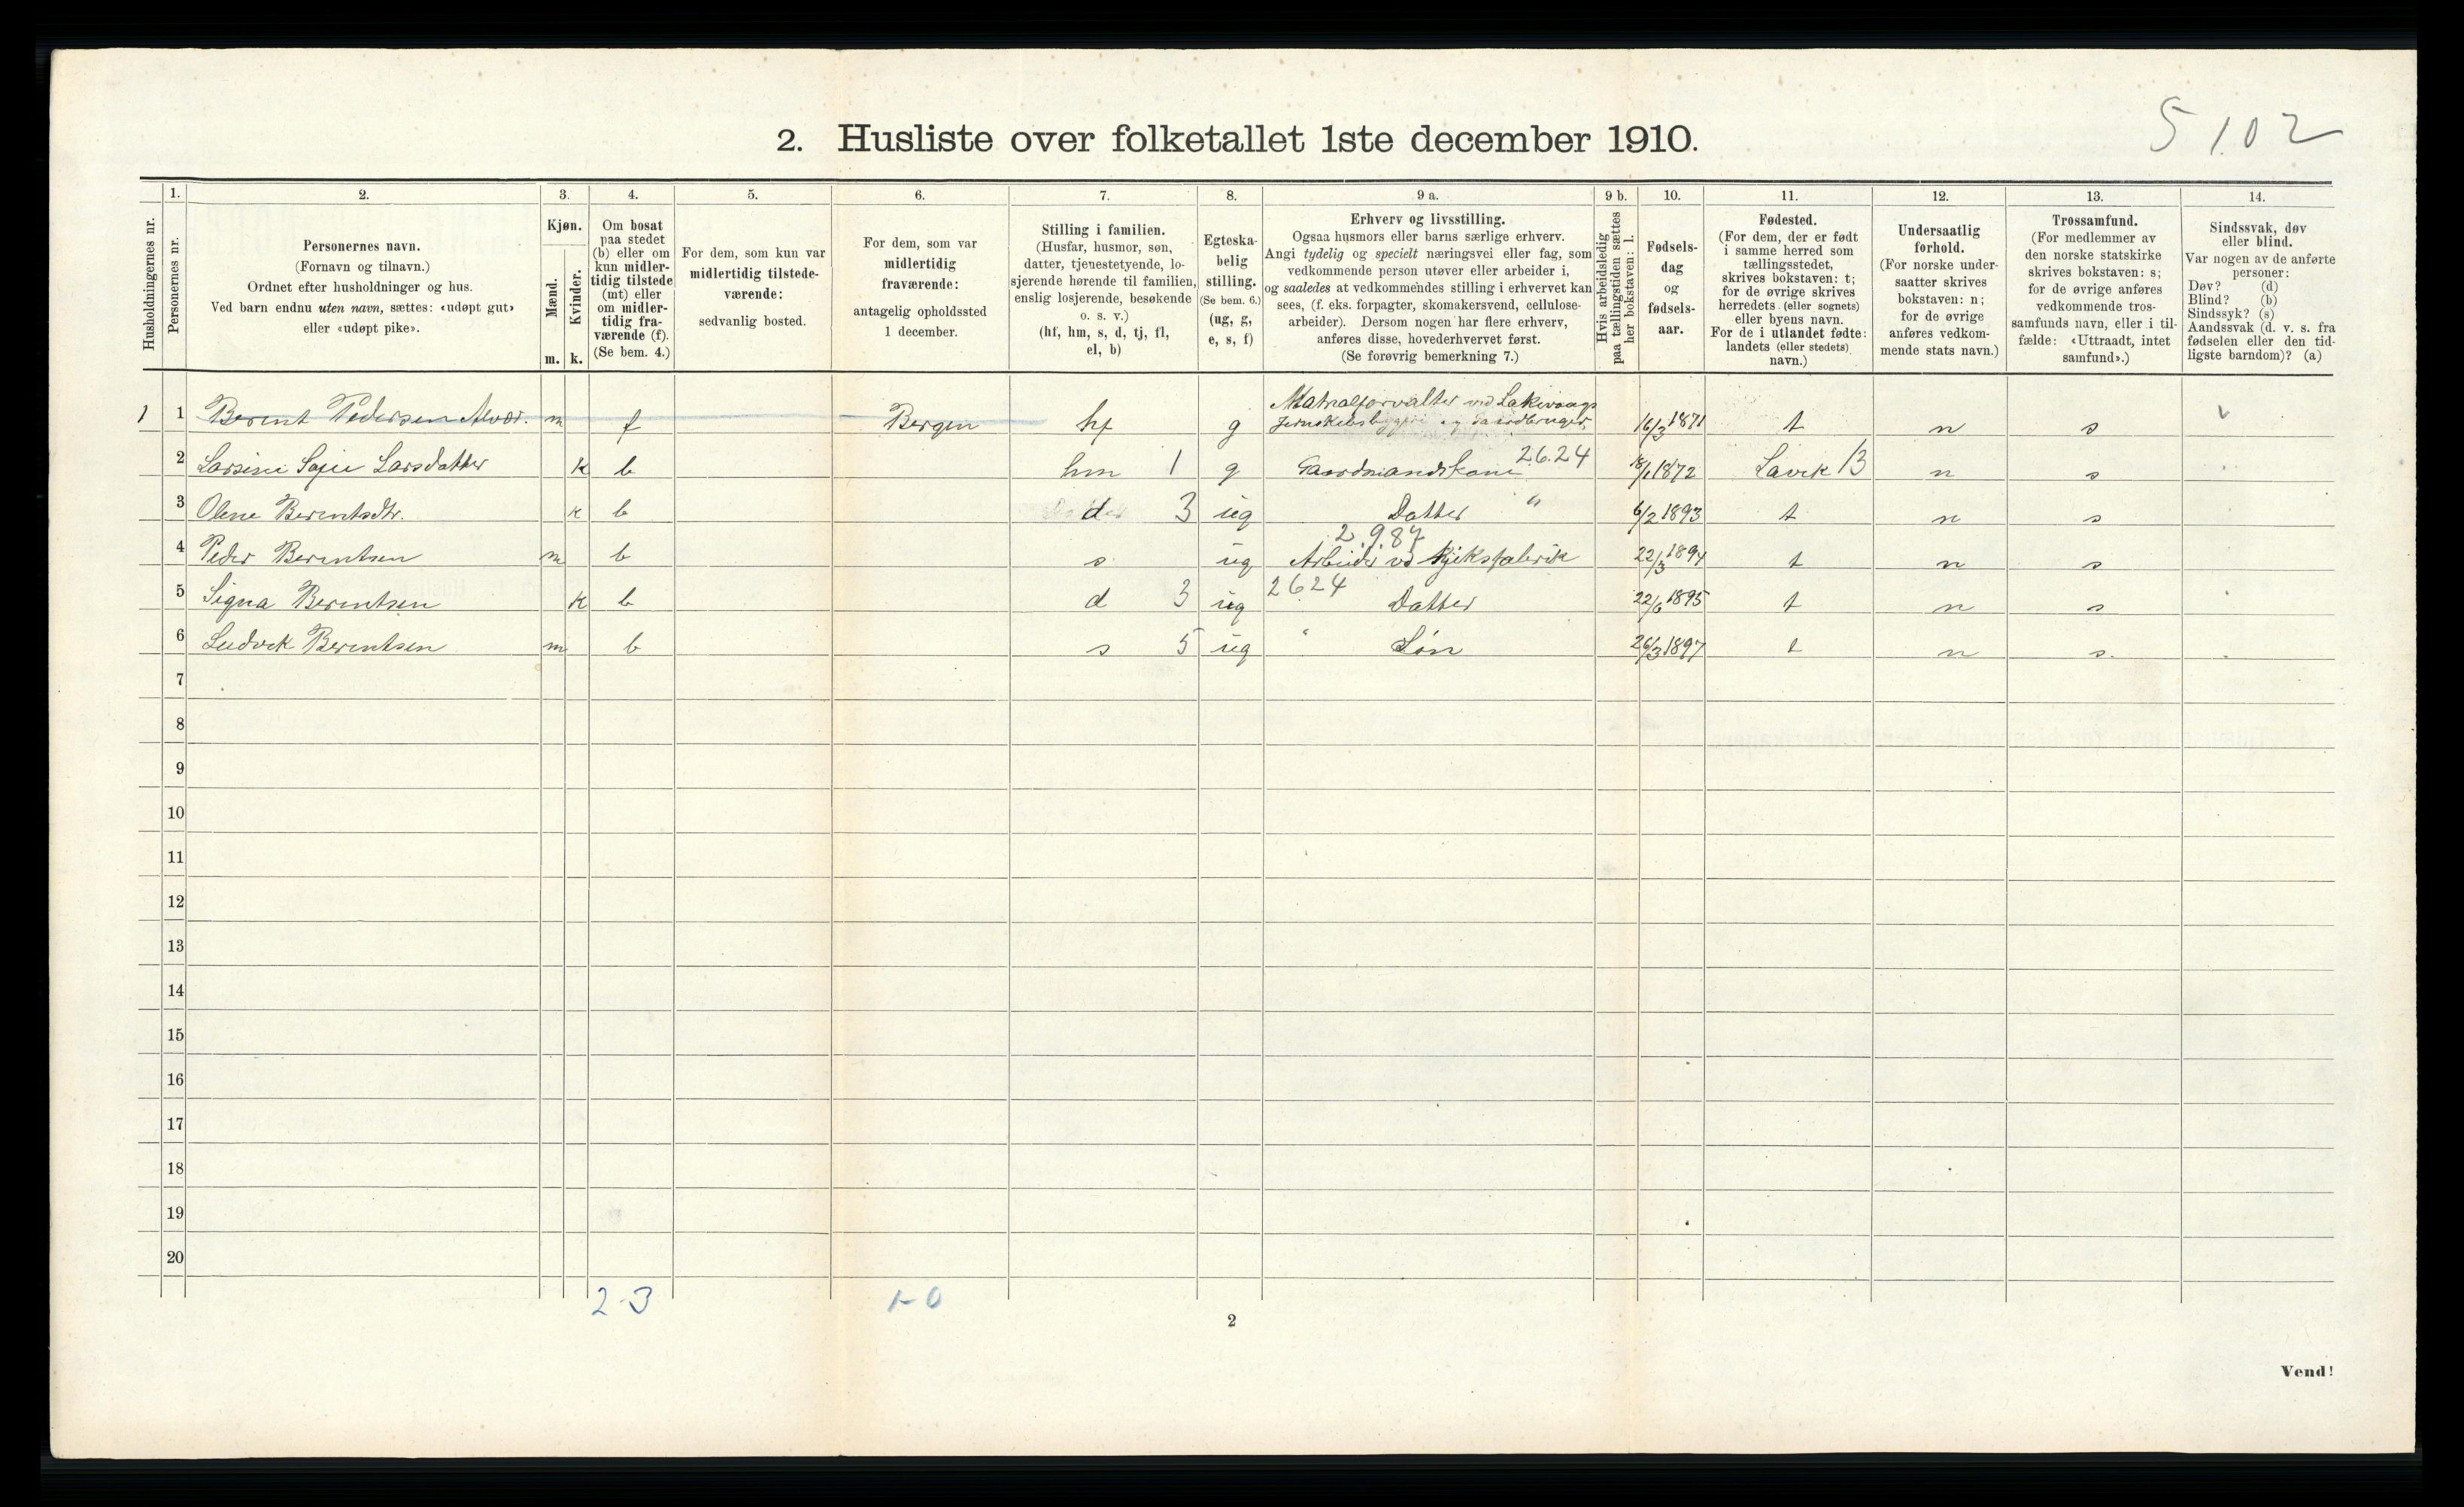 5102
2. Husliste over folketallet 1ste december 1910.
Husholdningernes nr.
1. Personernes nr.
2. Personernes navn.
(Fornavn og tilnavn.)
Ordnet efter husholdninger og hus.
Ved barn endnu uten navn, sættes: «udøpt gut»
eller «udøpt pike».
3. Kjøn.
Mænd. m.
Kvinder. k.
4. Om bosat
paa stedet
(b) eller om
kun midler-
tidig tilstede
(mt) eller
om midler-
tidig fra-
værende (f).
(Se bem. 4.)
5. For dem, som kun var
midlertidig tilstede-
værende:
sedvanlig bosted.
6. For dem, som var
midlertidig
fraværende:
antagelig opholdssted
1 december.
7. Stilling i familien.
(Husfar, husmor, søn,
datter, tjenestetyende, lo-
sjerende hørende til familien,
enslig losjerende, besøkende
o. s. v.)
(hf, hm, s, d, tj, fl,
el, b)
8. Egteska-
belig
stilling.
(Se bem. 6.)
(ug, g,
e, s, f)
9 a. Erhverv og livsstilling.
Ogsaa husmors eller barns særlige erhverv.
Angi tydelig og specielt næringsvei eller fag, som
vedkommende person utøver eller arbeider i,
og saaledes at vedkommendes stilling i erhvervet kan
sees, (f. eks. forpagter, skomakersvend, cellulose-
arbeider). Dersom nogen har flere erhverv,
anføres disse, hovederhvervet først.
(Se forøvrig bemerkning 7.)
9 b. Hvis arbeidsledig
paa tællingstiden sættes
her bokstaven: l.
10. Fødsels-
dag
og
fødsels-
aar.
11. Fødested.
(For dem, der er født
i samme herred som
tællingsstedet,
skrives bokstaven: t;
for de øvrige skrives
herredets (eller sognets)
eller byens navn.
For de i utlandet fødte:
landets (eller stedets)
navn.)
12. Undersaatlig
forhold.
(For norske under-
saatter skrives
bokstaven: n;
for de øvrige
anføres vedkom-
mende stats navn.)
13. Trossamfund.
(For medlemmer av
den norske statskirke
skrives bokstaven: s;
for de øvrige anføres
vedkommende tros-
samfunds navn, eller i til-
fælde: «Uttraadt, intet
samfund».)
14. Sindssvak, døv
eller blind.
Var nogen av de anførte
personer:
Døv? (d)
Blind? (b)
Sindssyk? (s)
Aandssvak (d. v. s. fra
fødselen eller den tid-
ligste barndom)? (a)
1 1 Berent Pedersen Alvær. m f Bergen hf g Matrialforvalter ved Laksevaags
Jernskibsbyggeri og Gaardbruger, 16/3 1871 t n s
2 Larsine Sofie Larsdatter k b hm 1 g Gaardmandskone 26.24 1872 Lavik 13 n s
3 Olene Berentsdtr. k b d 3 ug Datter " 6/2 1893 t n s
4 Peder Berentsen m b s ug 2.9.87 Arbeider vd Kjeksfabrik 22/3 1894 t n s
5 Signa Berentsen k b d 3 ug 2624 Datter 22/6 1895 t n s
6 Ludvik Berentsen m b s 5 ug " Søn 26/3 1897 t n s.
7
8
9
10
11
12
13
14
15
16
17
18
19
20
2-3 1-0
2
Vend!